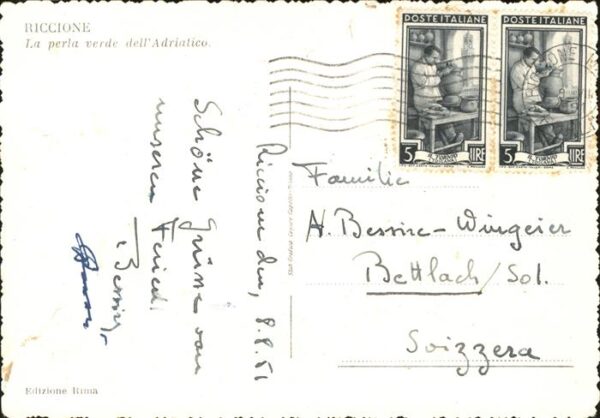 RICCIONE
La perla verde dell'Adriatico.
POSTE ITALIANE
POSTE ITALIANE
5 LIRE
5 LIRE
Riccione den, 8.8.51
Schöne Grüsse von
unseren
Familie
A. Bessire-Wingeier
Bettlach/Sol.
Svizzera
Edizione Rima